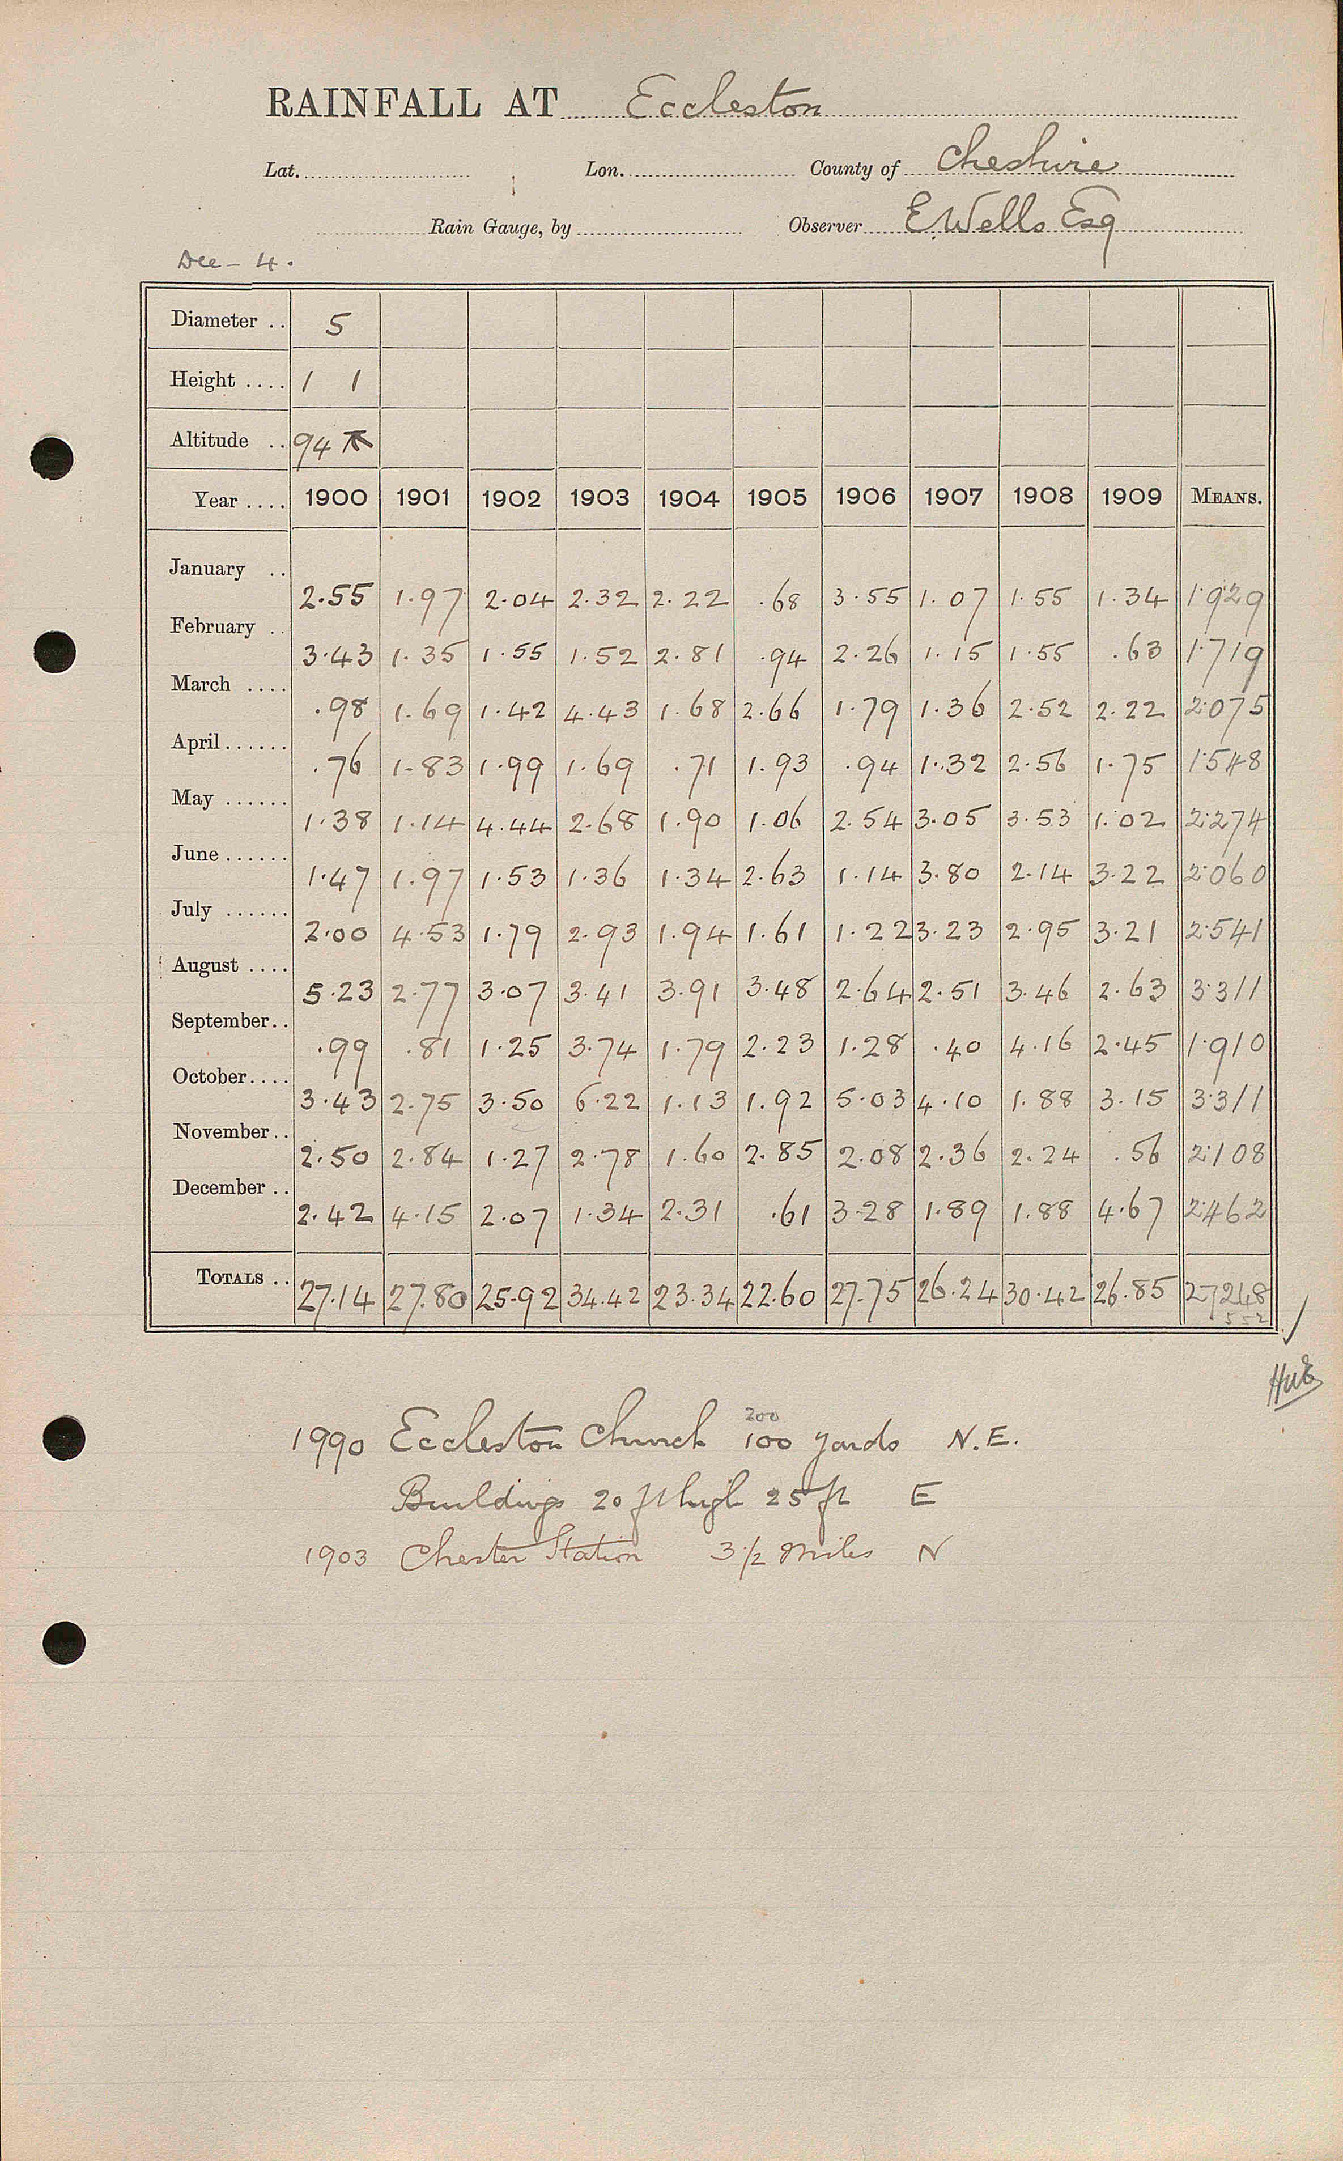 RAINFALL AT Eccleston
Lat. Lon. County of Cheshire
Rain Gauge, by Observer E. Wells Esq
Dee - 4.
Diameter .. 5
Height .... 1 1
Altitude .. 94
Year .... 1900 1901 1902 1903 1904 1905 1906 1907 1908 1909 MEANS.
January .. 2.55 1.97 2.04 2.32 2.22 .68 3.55 1.07 1.55 1.34 1.929
February .. 3.43 1.35 1.55 1.52 2.81 .94 2.26 1.15 1.55 .63 1.719
March .... .98 1.69 1.42 4.43 1.68 2.66 1.79 1.36 2.52 2.22 2.075
April...... .76 1.83 1.99 1.69 .71 1.93 .94 1.32 2.56 1.75 1.548
May ...... 1.38 1.14 4.44 2.68 1.90 1.06 2.54 3.05 3.53 1.02 2.274
June...... 1.47 1.97 1.53 1.36 1.34 2.63 1.14 3.80 2.14 3.22 2.060
July ...... 2.00 4.53 1.79 2.93 1.94 1.61 1.22 3.23 2.95 3.21 2.541
August .... 5.23 2.77 3.07 3.41 3.91 3.48 2.64 2.51 3.46 2.63 3.311
September.. .99 .81 1.25 3.74 1.79 2.23 1.28 .40 4.16 2.45 1.910
October.... 3.43 2.75 3.50 6.22 1.13 1.92 5.03 4.10 1.88 3.15 3.311
November.. 2.50 2.84 1.27 2.78 1.60 2.85 2.08 2.36 2.24 .56 2.108
December .. 2.42 4.15 2.07 1.34 2.31 .61 3.28 1.89 1.88 4.67 2.462
TOTALS .. 27.14 27.80 25.92 34.42 23.34 22.60 27.75 26.24 30.42 26.85 27.248
1990 Eccleston Church 100 yards N.E.
200
Buildings 20 ft high 25 ft E
1903 Chester Station 3 1/2 miles N